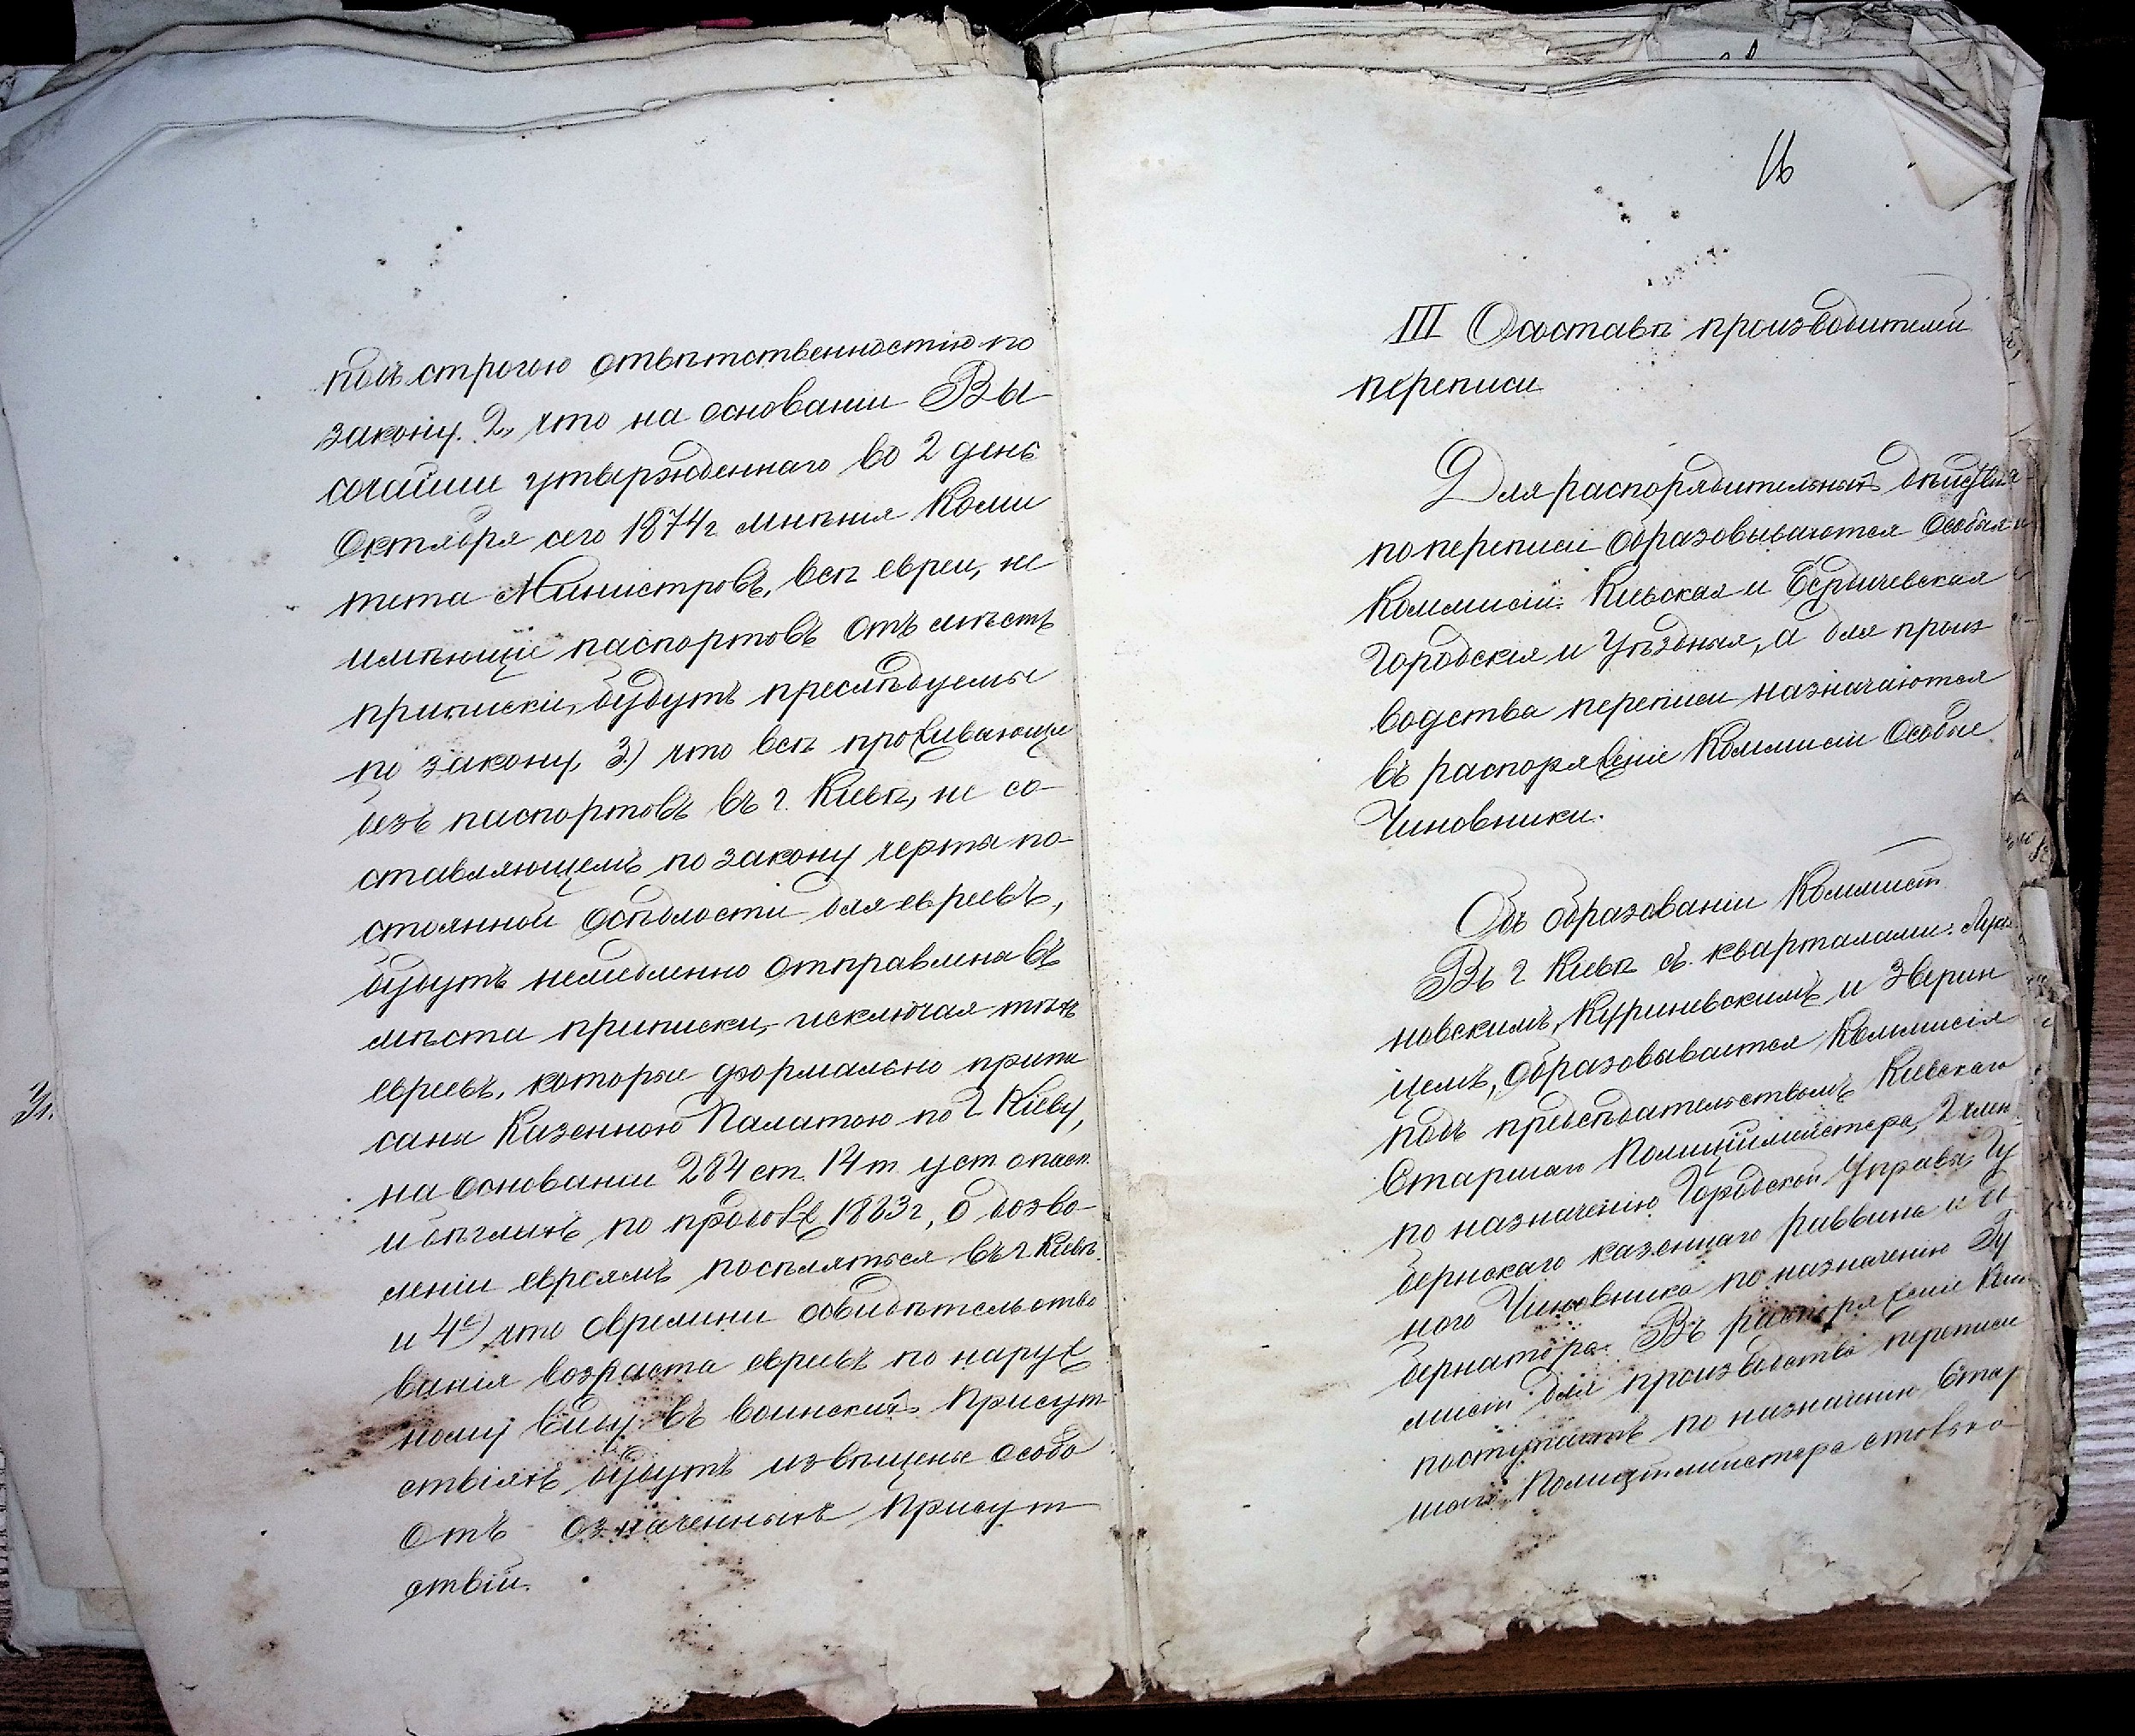 подъ строгою отвѣтственностію по
закону. 2, что на основаніи Вы
сочайше утвержденнаго во 2 день
Октября сего 1874 г. мнѣнія Коми
тета Министровъ, всѣ евреи, не
имѣющіе паспортовъ отъ мѣстъ
приписки, будутъ преслѣдуемы
по закону, 3.) что всѣ проживающіе
безъ паспортовъ въ г. Кіевѣ, не со-
ставляющемъ по закону черты по-
стоянной осѣдлости для евреевъ,
будутъ немедленно отправлена въ
мѣста приписки, исключая тѣхъ
евреевъ, которые формально припи
саны Казенною Палатою по г. Кіеву,
на основаніи 284 ст. 14 т. уст. о пасп.
и бѣглыхъ по продолж 1863 г, о дозво-
леніи евреямъ поселяться въ г. Кіевѣ.
и 4е) что о времени освидѣтельство
ванія возраста евреевъ по наруж
ному виду въ воинскихъ Присут
ствіяхъ будутъ извѣщены особо
отъ означенныхъ Присут
ствій.
Зл.
16
III О составѣ производителей
переписи
Для распорядительныхъ дѣйствій
по переписи образовываются Особыя
Коммисіи: Кіевская и Бердичевская
Городскія и Уѣздныя, а для произ
водства переписи назначаются
въ распоряженіе Коммисіи Особые
Чиновники.
Объ образованіи Коммисій
Въ г. Кіевѣ съ кварталами: Лукья
новскимъ, Куриневскимъ и Звѣрин
цемъ, образовывается Коммисія
подъ предсѣдательствомъ Кіевскаго
Старшаго Полиціймейстера, 2 член.
по назначенію Городской Управы, Гу
бернскаго казеннаго раввина и
ного Чиновника по назначенію Гу
бернатора. Въ распоряженіе Ком
мисіи для производства переписи
поступаютъ по назначенію Стар
шаго Полиціймейстера столько